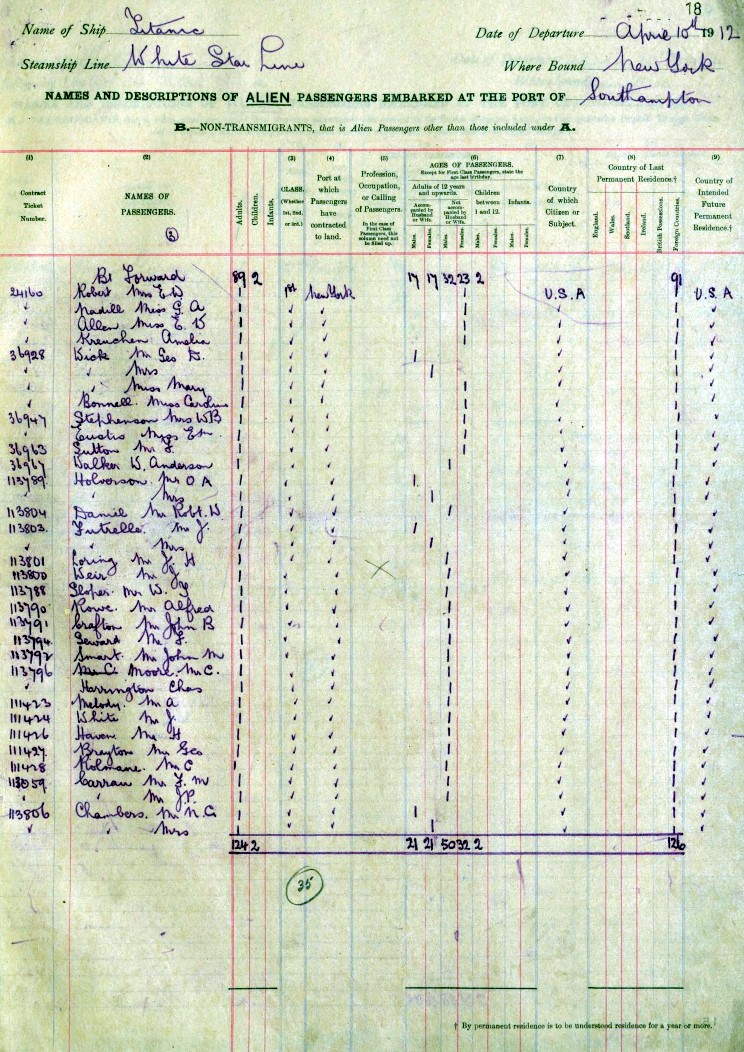 18
Name of Ship Titanic Date of Departure April 10th 1912
Steamship Line White Star Line Where Bound New York
NAMES AND DESCRIPTIONS OF ALIEN PASSENGERS EMBARKED AT THE PORT OF Southampton
B.—NON-TRANSMIGRANTS, that is Alien Passengers other than those included under A.
(1) (2) (3) (4) (5) (6) (7) (8) (9)
Contract Ticket Number.
NAMES OF PASSENGERS.
3
Adults.
Children.
Infants.
CLASS. (Whether 1st, 2nd, or 3rd.)
Port at which Passengers have contracted to land.
Profession, Occupation, or Calling of Passengers.
In the case of First Class Passengers, this column need not be filled up.
AGES OF PASSENGERS.
Except for First Class Passengers, state the age last birthday.
Adults of 12 years and upwards.
Accompanied by Husband or Wife.
Not accompanied by Husband or Wife.
Children between 1 and 12.
Infants.
Males. Females. Males. Females. Males. Females. Males. Females.
Country of which Citizen or Subject.
Country of Last Permanent Residence.†
England. Wales. Scotland. Ireland. British Possessions. Foreign Countries.
Country of Intended Future Permanent Residence.†
Bt Forward 89 2 17 17 32 23 2 91
24160 Robert Mrs E. W 1st New York U.S.A U.S.A
Madill Miss G. A
Allen Miss E. W
Kreuchen Amelia
36928 Wick Mr Geo D.
" Mrs
" Miss Mary
Bonnell. Miss Caroline
36947 Stephenson Mrs W B
Eustis Miss E m
36963 Sutton Mr F.
36967 Walker W. Anderson
113789 Holverson. Mr O A
" Mrs
113804 Daniel Mr Robt. W
113803. Futrelle. Mr J.
" Mrs
113801 Loring Mr J. H
113800 Weir Mr J
113788 Sloper. Mr W. T
113790 Rowe. Mr Alfred
113791 Crafton Mr John B
113794. Seward Mr F.
113792 Smart. Mr John M
113796 Moore. Mr C.
Harrington Chas
111423 Melody. Mr A
111424 White Mr J.
111426 Haven Mr H
111427 Brayton Mr Geo
111428 Rolmane. Mr C
113059 Carrau Mr F. M
" Mr J.P.
113806 Chambers. Mr N. C
" Mrs
124 2 21 21 50 32 2 126
35
† By permanent residence is to be understood residence for a year or more.